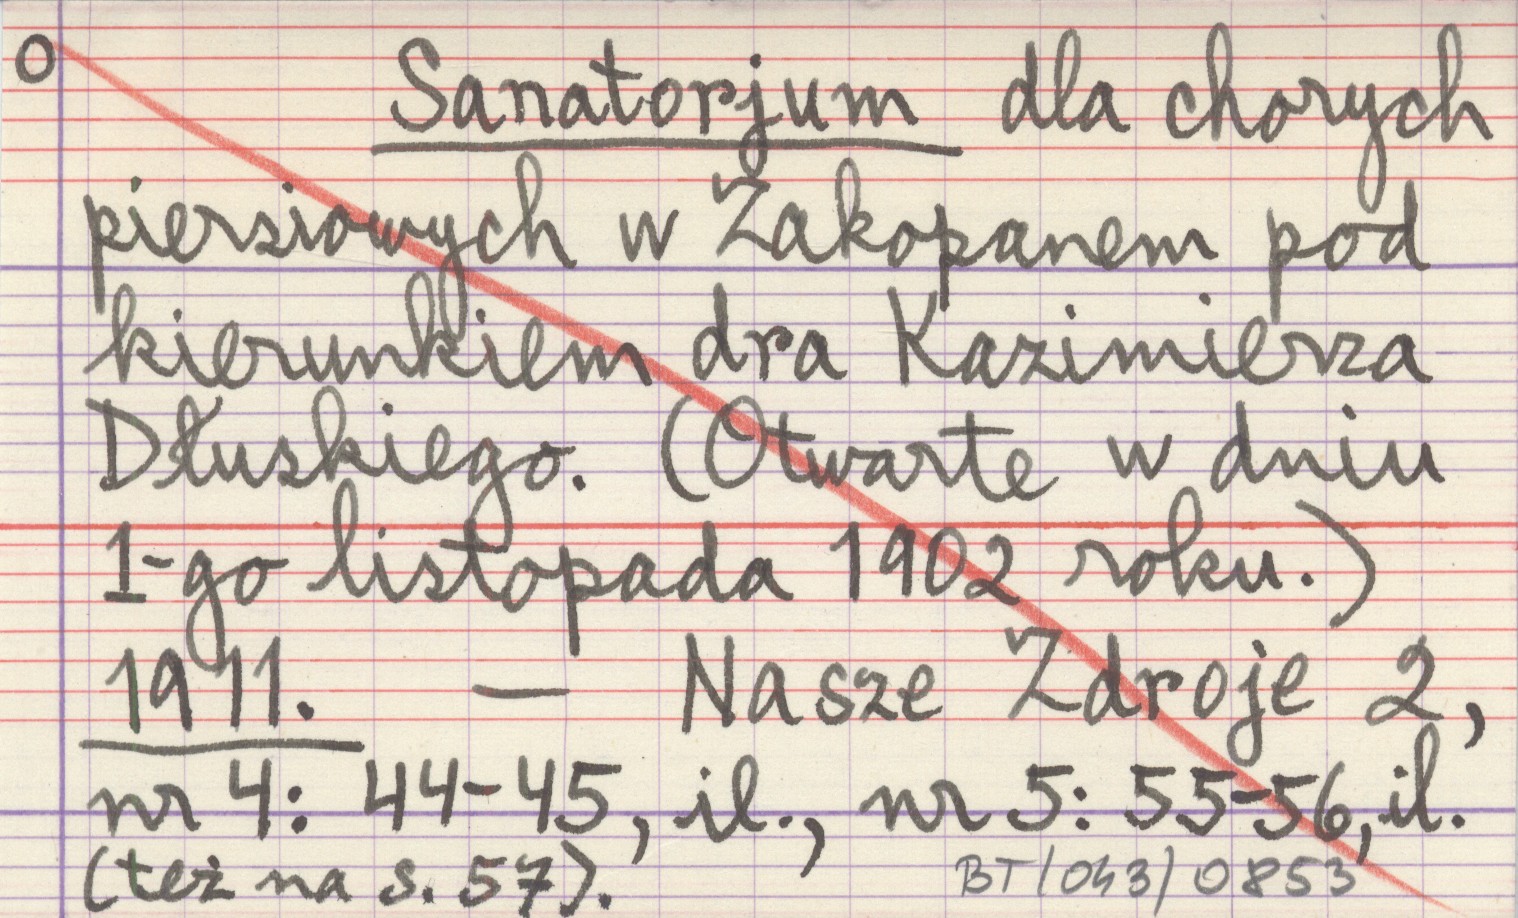 O Sanatorjum dla chorych
piersiowych w Zakopanem pod
kierunkiem dra Kazimierza
Dłuskiego. (Otwarte w dniu
1-go listopada 1902 roku.)
1911. — Nasze Zdroje 2,
nr 4: 44-45, il., nr 5: 55-56, il.
(też na s. 57). BT/043/0853